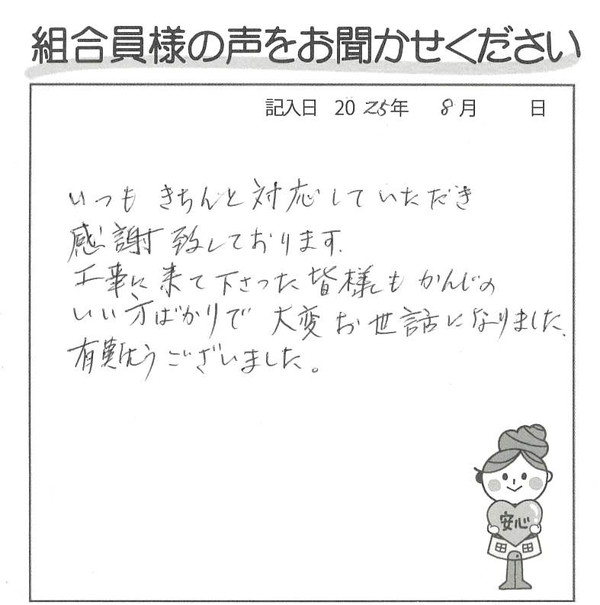 組合員様の声をお聞かせください
記入日 2025年 8月 日
いつも きちんと対応していただき
感謝致しております.
工事に来て下さった皆様も かんじの
いい方ばかりで 大変お世話になりました.
有難うございました。
安心